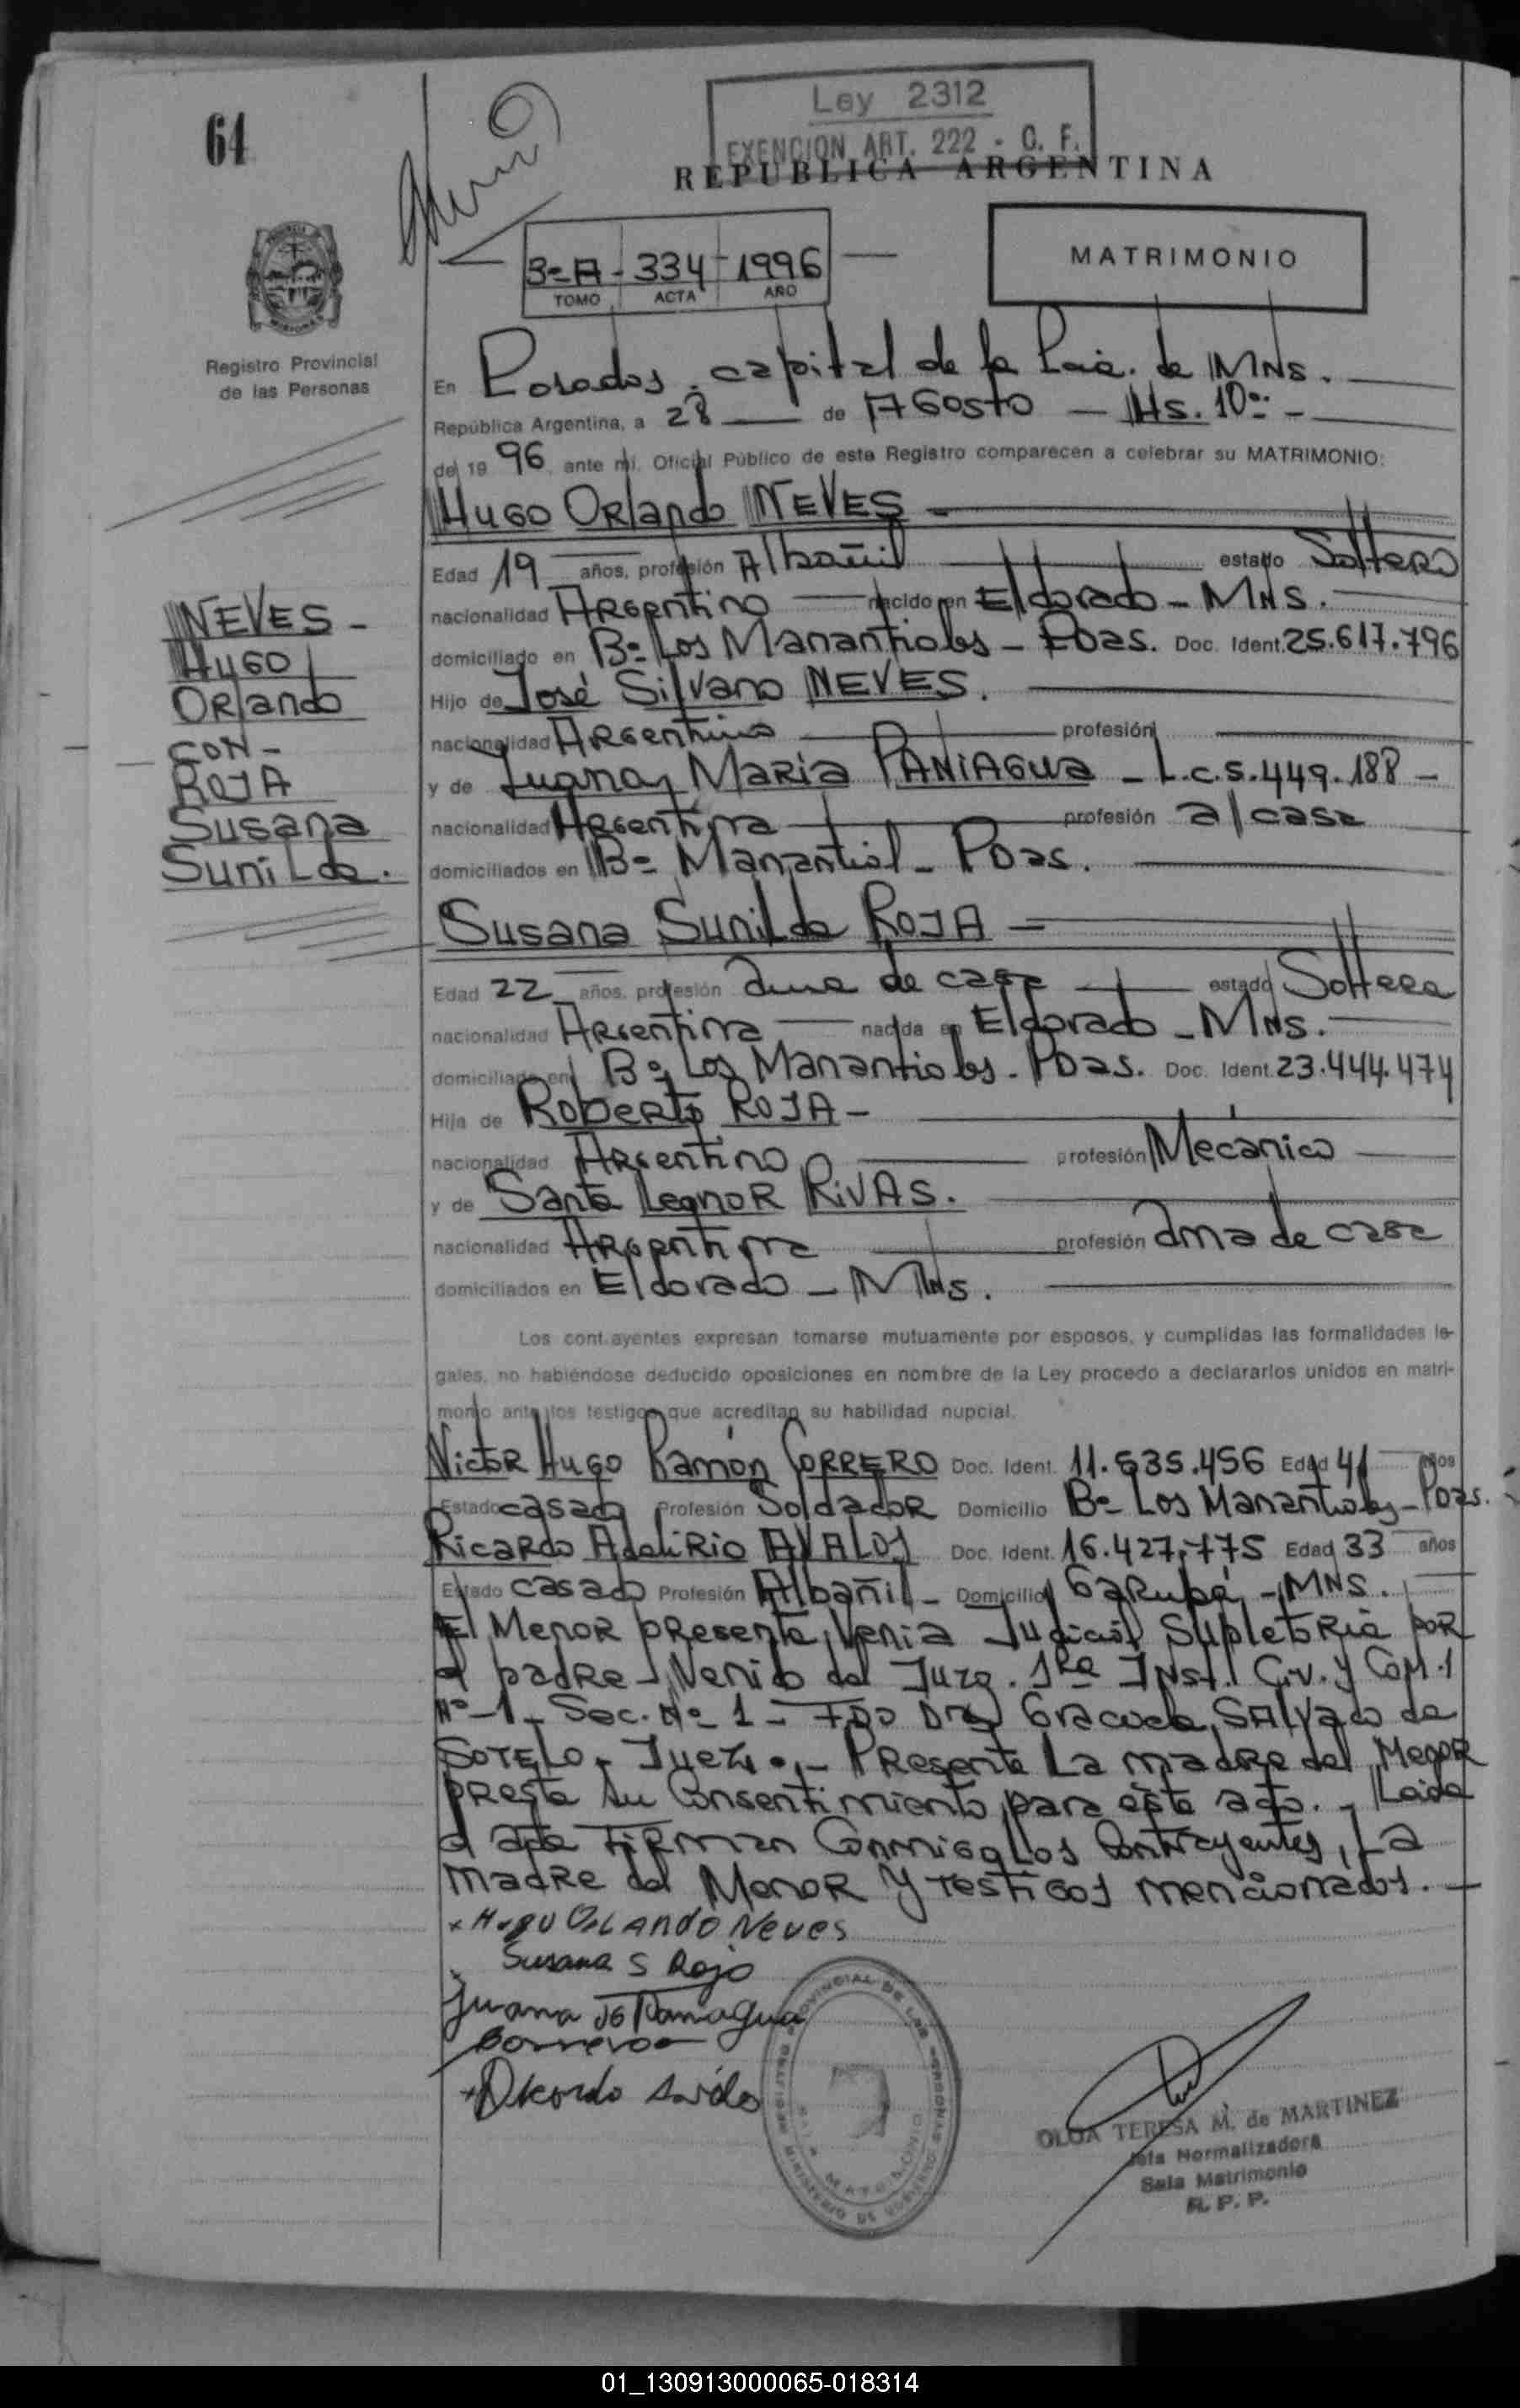 64
Ley 2312
EXENCION ART. 222 - C. F.
REPUBLICA ARGENTINA
3º A - 334 - 1996
TOMO ACTA AÑO
MATRIMONIO
Registro Provincial
de las Personas
En Posadas, capital de la Pcia. de MNS.
República Argentina, a 28 de AGosto - Hs. 10:
del 19 96 ante mí, Oficial Público de este Registro comparecen a celebrar su MATRIMONIO:
Hugo Orlando NEVES
Edad 19 años, profesión Albañil estado Soltero
nacionalidad Argentino nacido en Eldorado - MNS.
domiciliado en Bº Los Manantiales - Pdas. Doc. Ident. 25.617.796
Hijo de José Silvano NEVES.
nacionalidad Argentino profesión
y de Juana María PANIAGUA - L.C. 5.449.188 -
nacionalidad Argentina profesión a/casa
domiciliados en Bº Manantial - Pdas.
NEVES -
Hugo
Orlando
CON -
ROJA
Susana
Sunilda.
Susana Sunilda ROJA -
Edad 22 años, profesión ama de casa estado Soltera
nacionalidad Argentina nacida en Eldorado - MNS.
domiciliada en Bº Los Manantiales - Pdas. Doc. Ident. 23.444.474
Hija de Roberto ROJA -
nacionalidad Argentino profesión Mecánico
y de Santa Leonor RIVAS.
nacionalidad Argentina profesión ama de casa
domiciliados en Eldorado - MNS.
Los contrayentes expresan tomarse mutuamente por esposos, y cumplidas las formalidades le-
gales, no habiéndose deducido oposiciones en nombre de la Ley procedo a declararlos unidos en matri-
monio ante los testigos que acreditan su habilidad nupcial.
Victor Hugo Ramón CORRERO Doc. Ident. 11.535.456 Edad 41 años
Estado casado Profesión Soldador Domicilio Bº Los Manantiales - Pdas.
Ricardo Adelirio AVALOS Doc. Ident. 16.427.775 Edad 33 años
Estado casado Profesión Albañil - Domicilio Garupá - MNS.
El Menor presenta Venia Judicial Supletoria por
el padre - Venido del Juzg. 1ra Inst. Civ. y Com.
Nº 1 - Sec. Nº 1 - FDO Dra Graciela SALVADO de
SOTELO - Juez. - Presente La madre del Menor
presta su Consentimiento para este acto. - Leída
el acta Firman Conmigo Los Contrayentes, La
madre del Menor y testigos mencionados. -
x Hugo Orlando Neves
Susana S Roja
Juana Paniagua
Correro
x Ricardo Avalos
OLGA TERESA M. de MARTINEZ
Jefa Normalizadora
Sala Matrimonio
R. P. P.
01_130913000065-018314